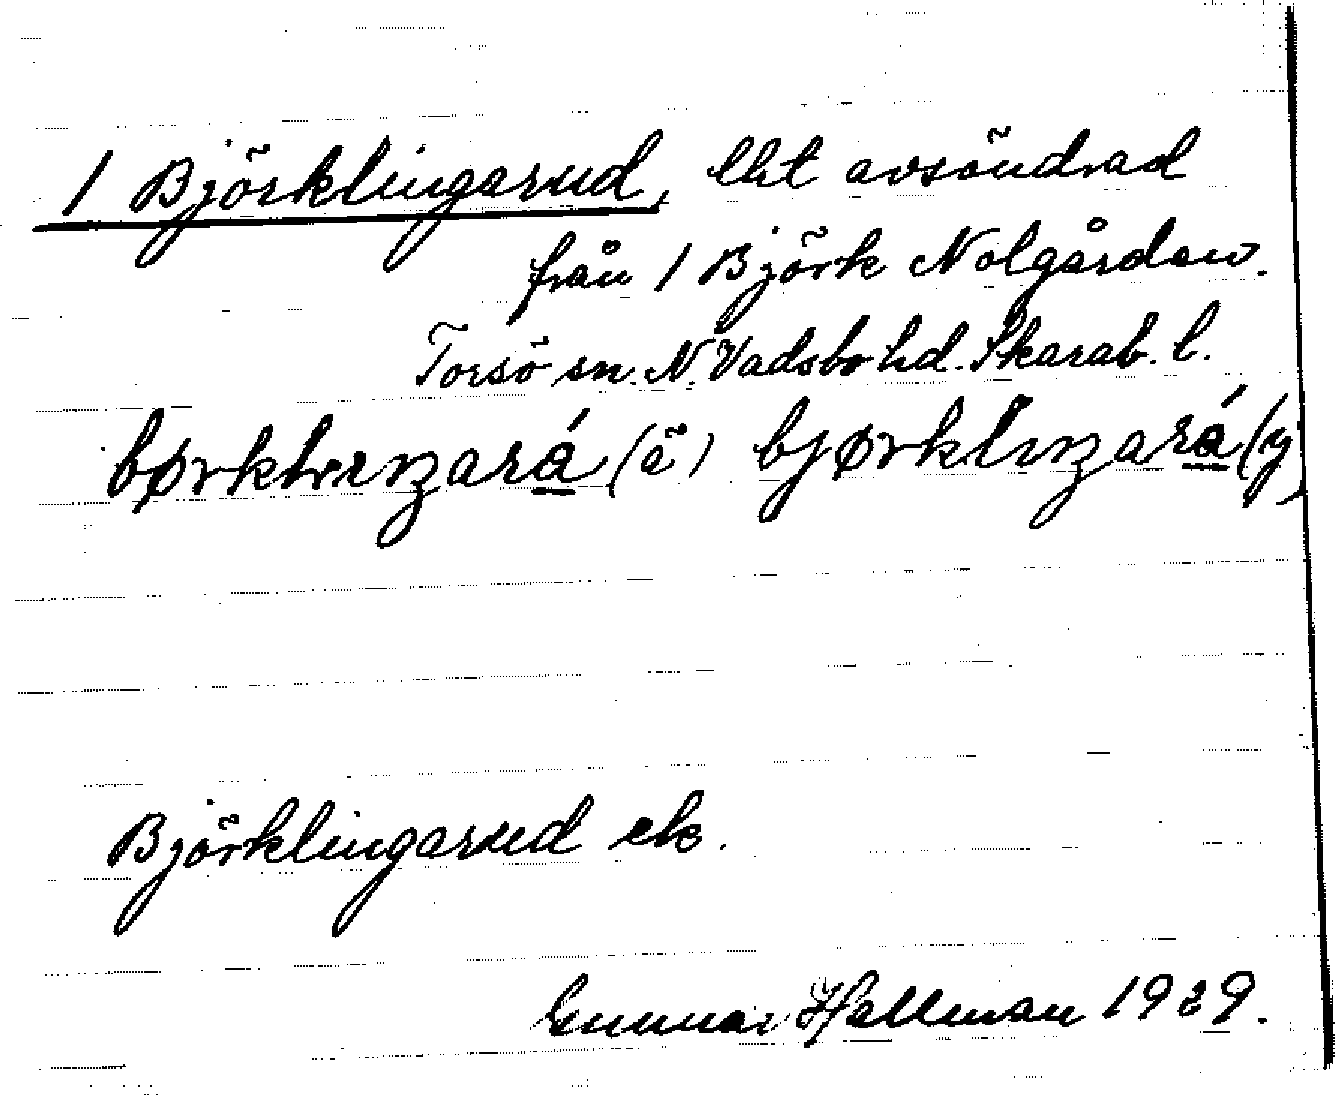 1 Björklingarud, lht avsöndrad
från 1 Björk Nolgården.
Torsö sn. N. Vadsbo hd. Skarab. l.
(ä) bjørklıŋará (y)
Björklingarud ek.
Gunnar Hallman 1929.